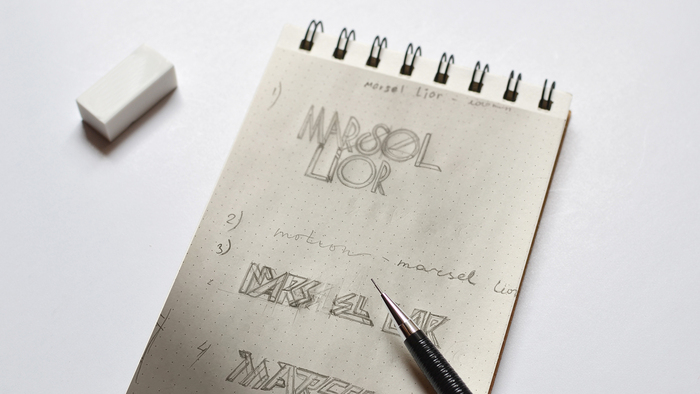 Marsel Lior -
1)
MARSEL
LIOR
2) motion - marsel Lior
3)
MARSEL LIOR
4)
MARSEL